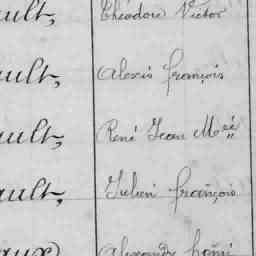 ault, Théodore Victor
ault, Alexis françois
ault, René Jean M
ault, Julien françois
aux Alexandre